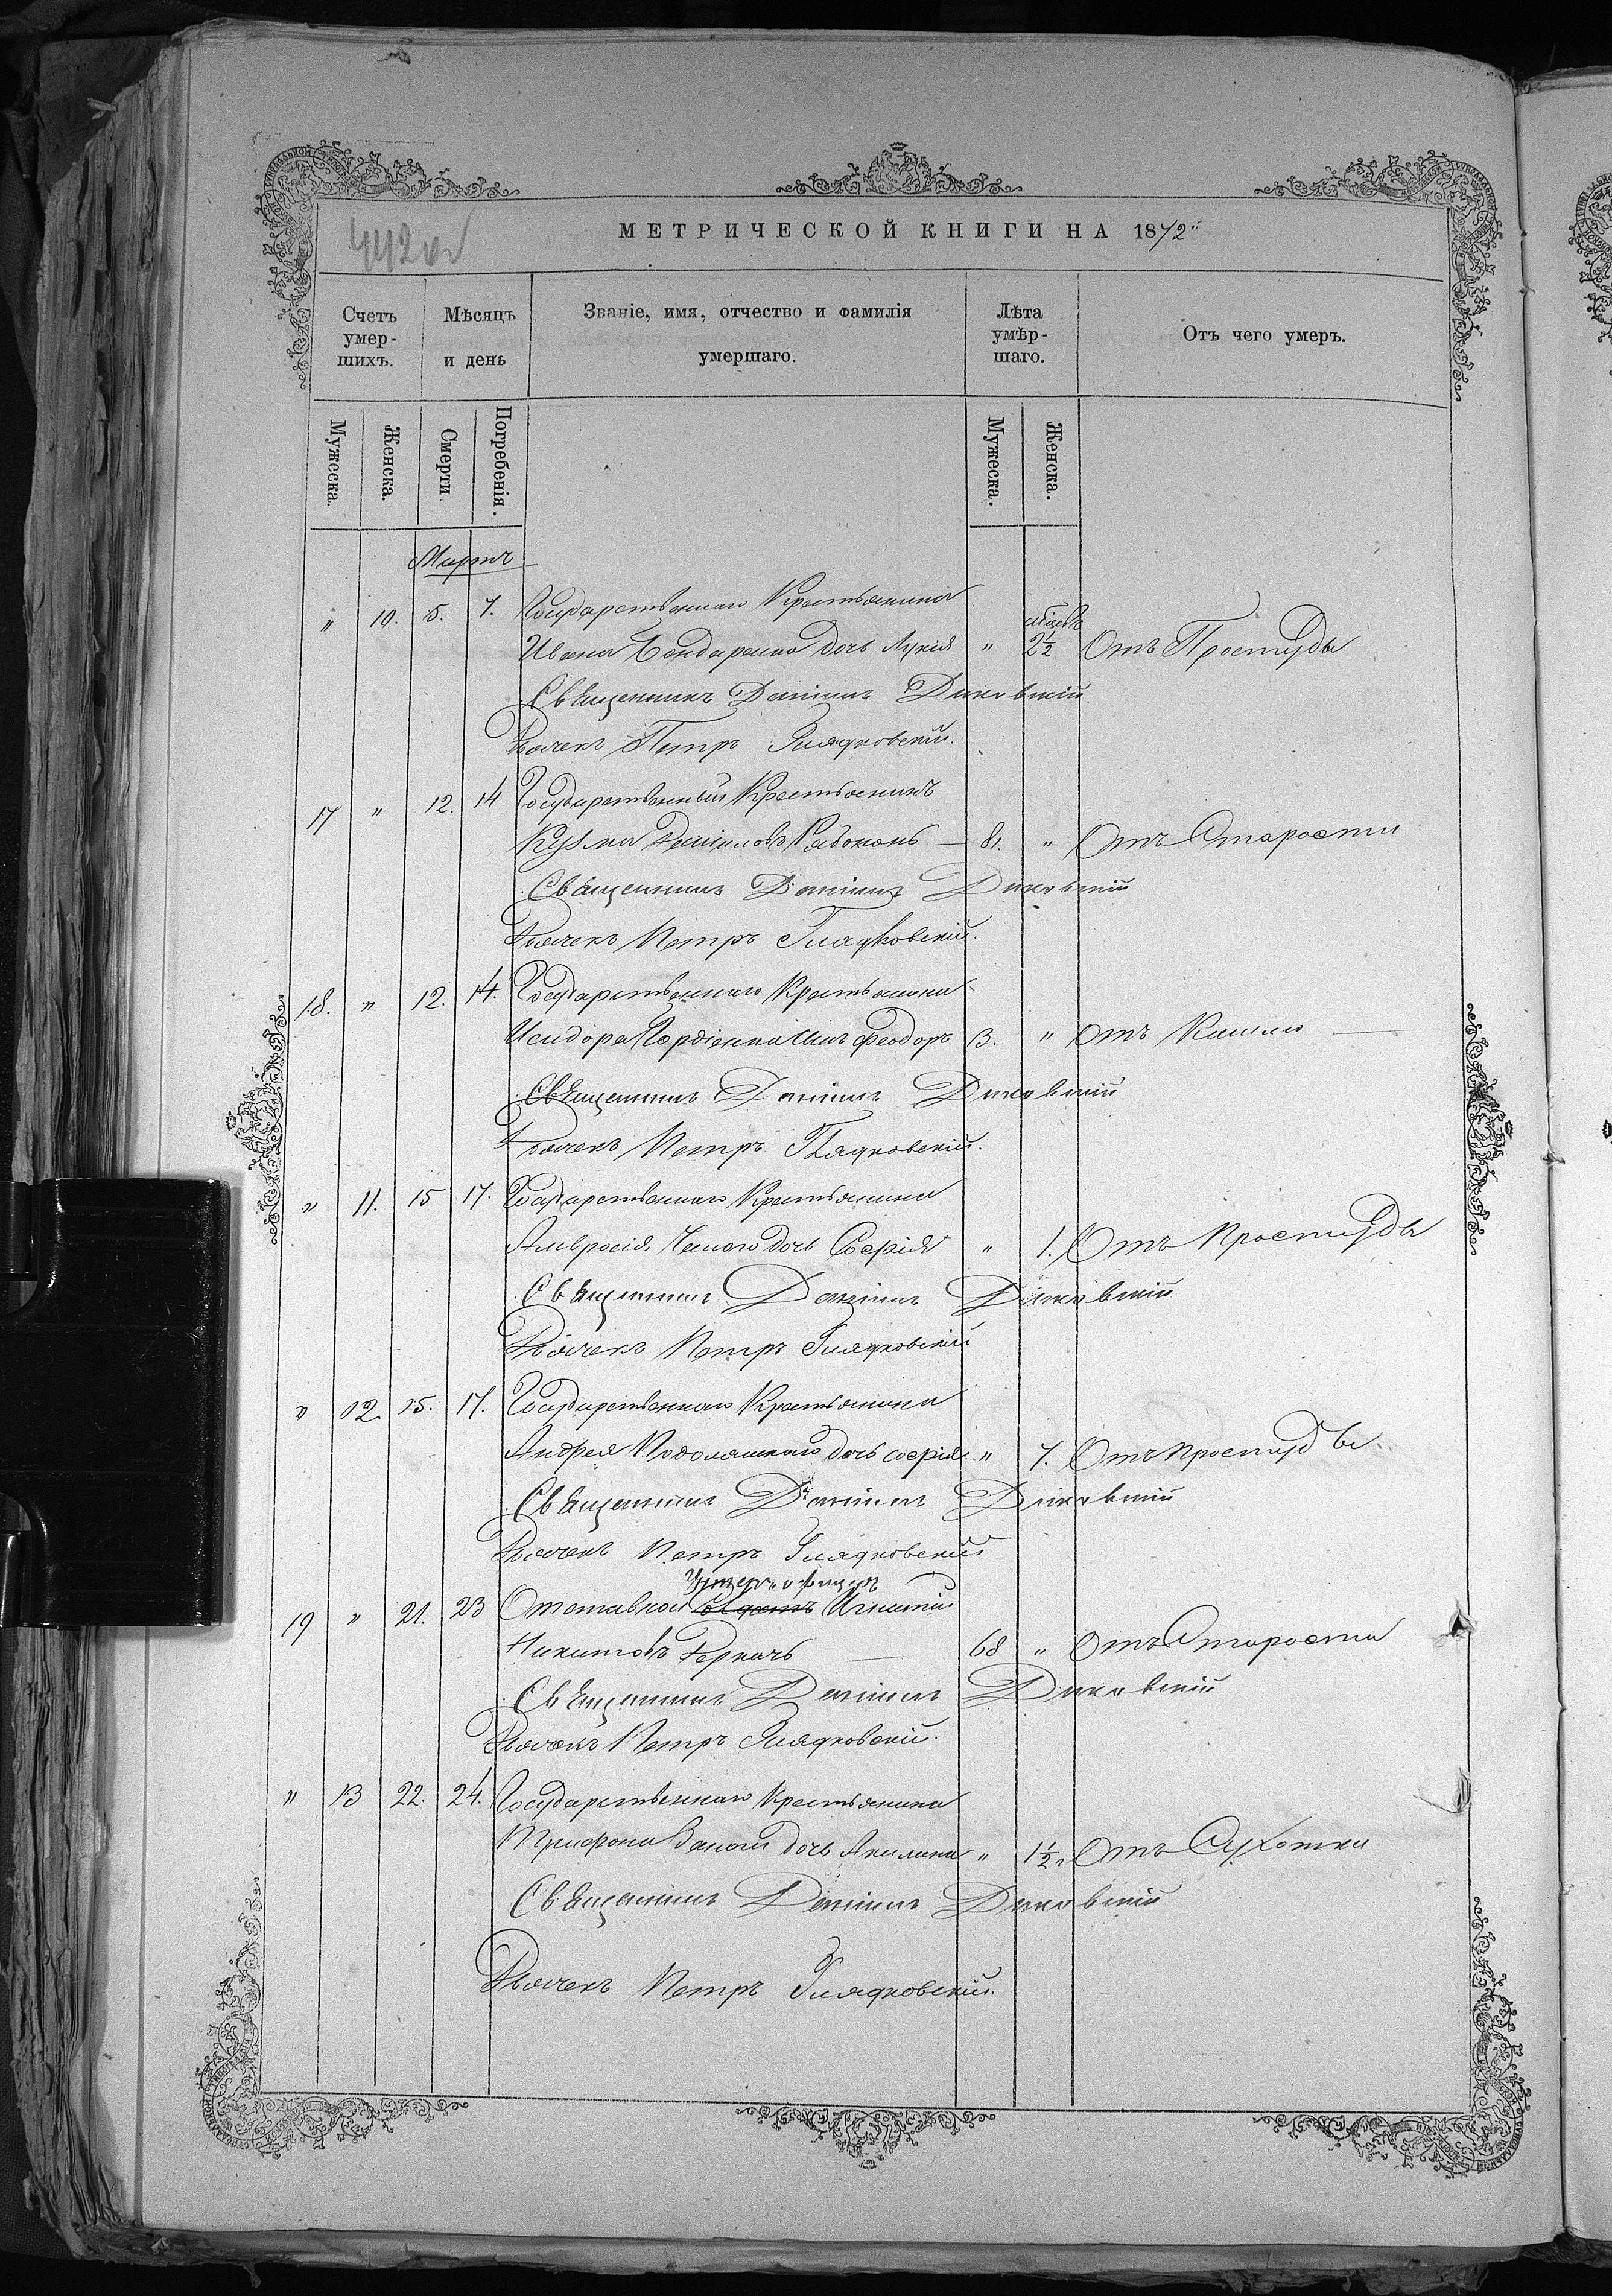 442об
МЕТРИЧЕСКОЙ КНИГИ НА 1872"
Счетъ умер-шихъ.
Мѣсяцъ и день
Званіе, имя, отчество и фамилія умершаго.
Лѣта умѣр-шаго.
Отъ чего умеръ.
Мужеска.
Женска.
Смерти.
Погребенія.
Мужеска.
Женска.
Мартъ
" 10. 5. 7. Государственнаго Крестьянина
Ивана Бондаренка дочь Лукія " мѣсец 2½ Отъ Простуды
Священникъ Даніилъ Диковскій
Дьячекъ Петръ Гладковскій.
17 " 12. 14 Государственный Крестьянинъ
Кузма Даніиловъ Рябоконь — 81. " Отъ Старости
Священникъ Даніилъ Диковскій
Дьячекъ Петръ Гладковскій.
18. " 12. 14. Государственнаго Крестьянина
Исидора Гордіенка сынъ Феодоръ 3. " Отъ Кашлю —
Священникъ Даніилъ Диковскій
Дьячекъ Петръ Гладковскій.
" 11. 15 17. Государственнаго Крестьянина
Амвросія дочь Софія " 1. Отъ Простуды
Священникъ Даніилъ Диковскій
Дьячекъ Петръ Гладковскій
" 12. 15. 17. Государственнаго Крестьянина
Андрея дочь софія " 7. Отъ простуды.
Священникъ Даніилъ Диковскій
Дьячекъ Петръ Гладковскій
Унтеръ офицеръ
19 " 21. 23 Отставной Игнатій
Никитовъ Деркачъ — 68 " Отъ Старости
Священникъ Даніилъ Диковскій
Дьячекъ Петръ Гладковскій.
" 13 22. 24. Государственнаго Крестьянина
Трифона дочь Акилина " 1½ Отъ Сухотки
Священникъ Даніилъ Диковскій
Дьячекъ Петръ Гладковскій.